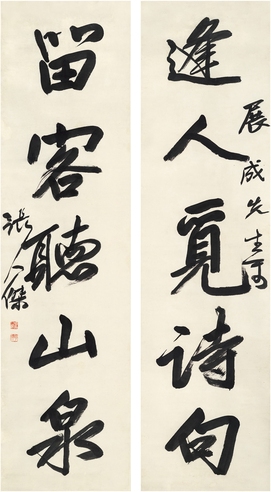 逢人覓诗句
展成先生属
留客聽山泉
張人傑